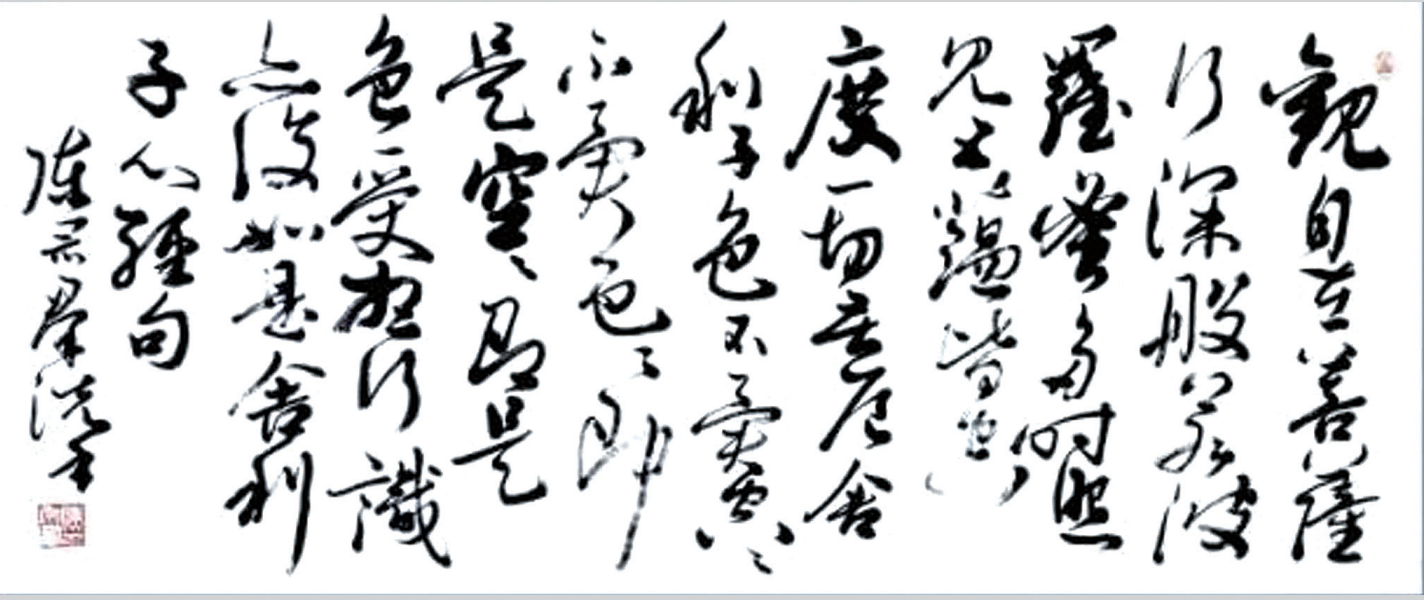 觀自在菩薩
行深般若波
羅蜜多時照
見五蘊皆空
度一切苦厄舍
利子色不異空〻
不異色〻即
是空〻即是
色受想行識
亦復如是舍利
子心經句
陳